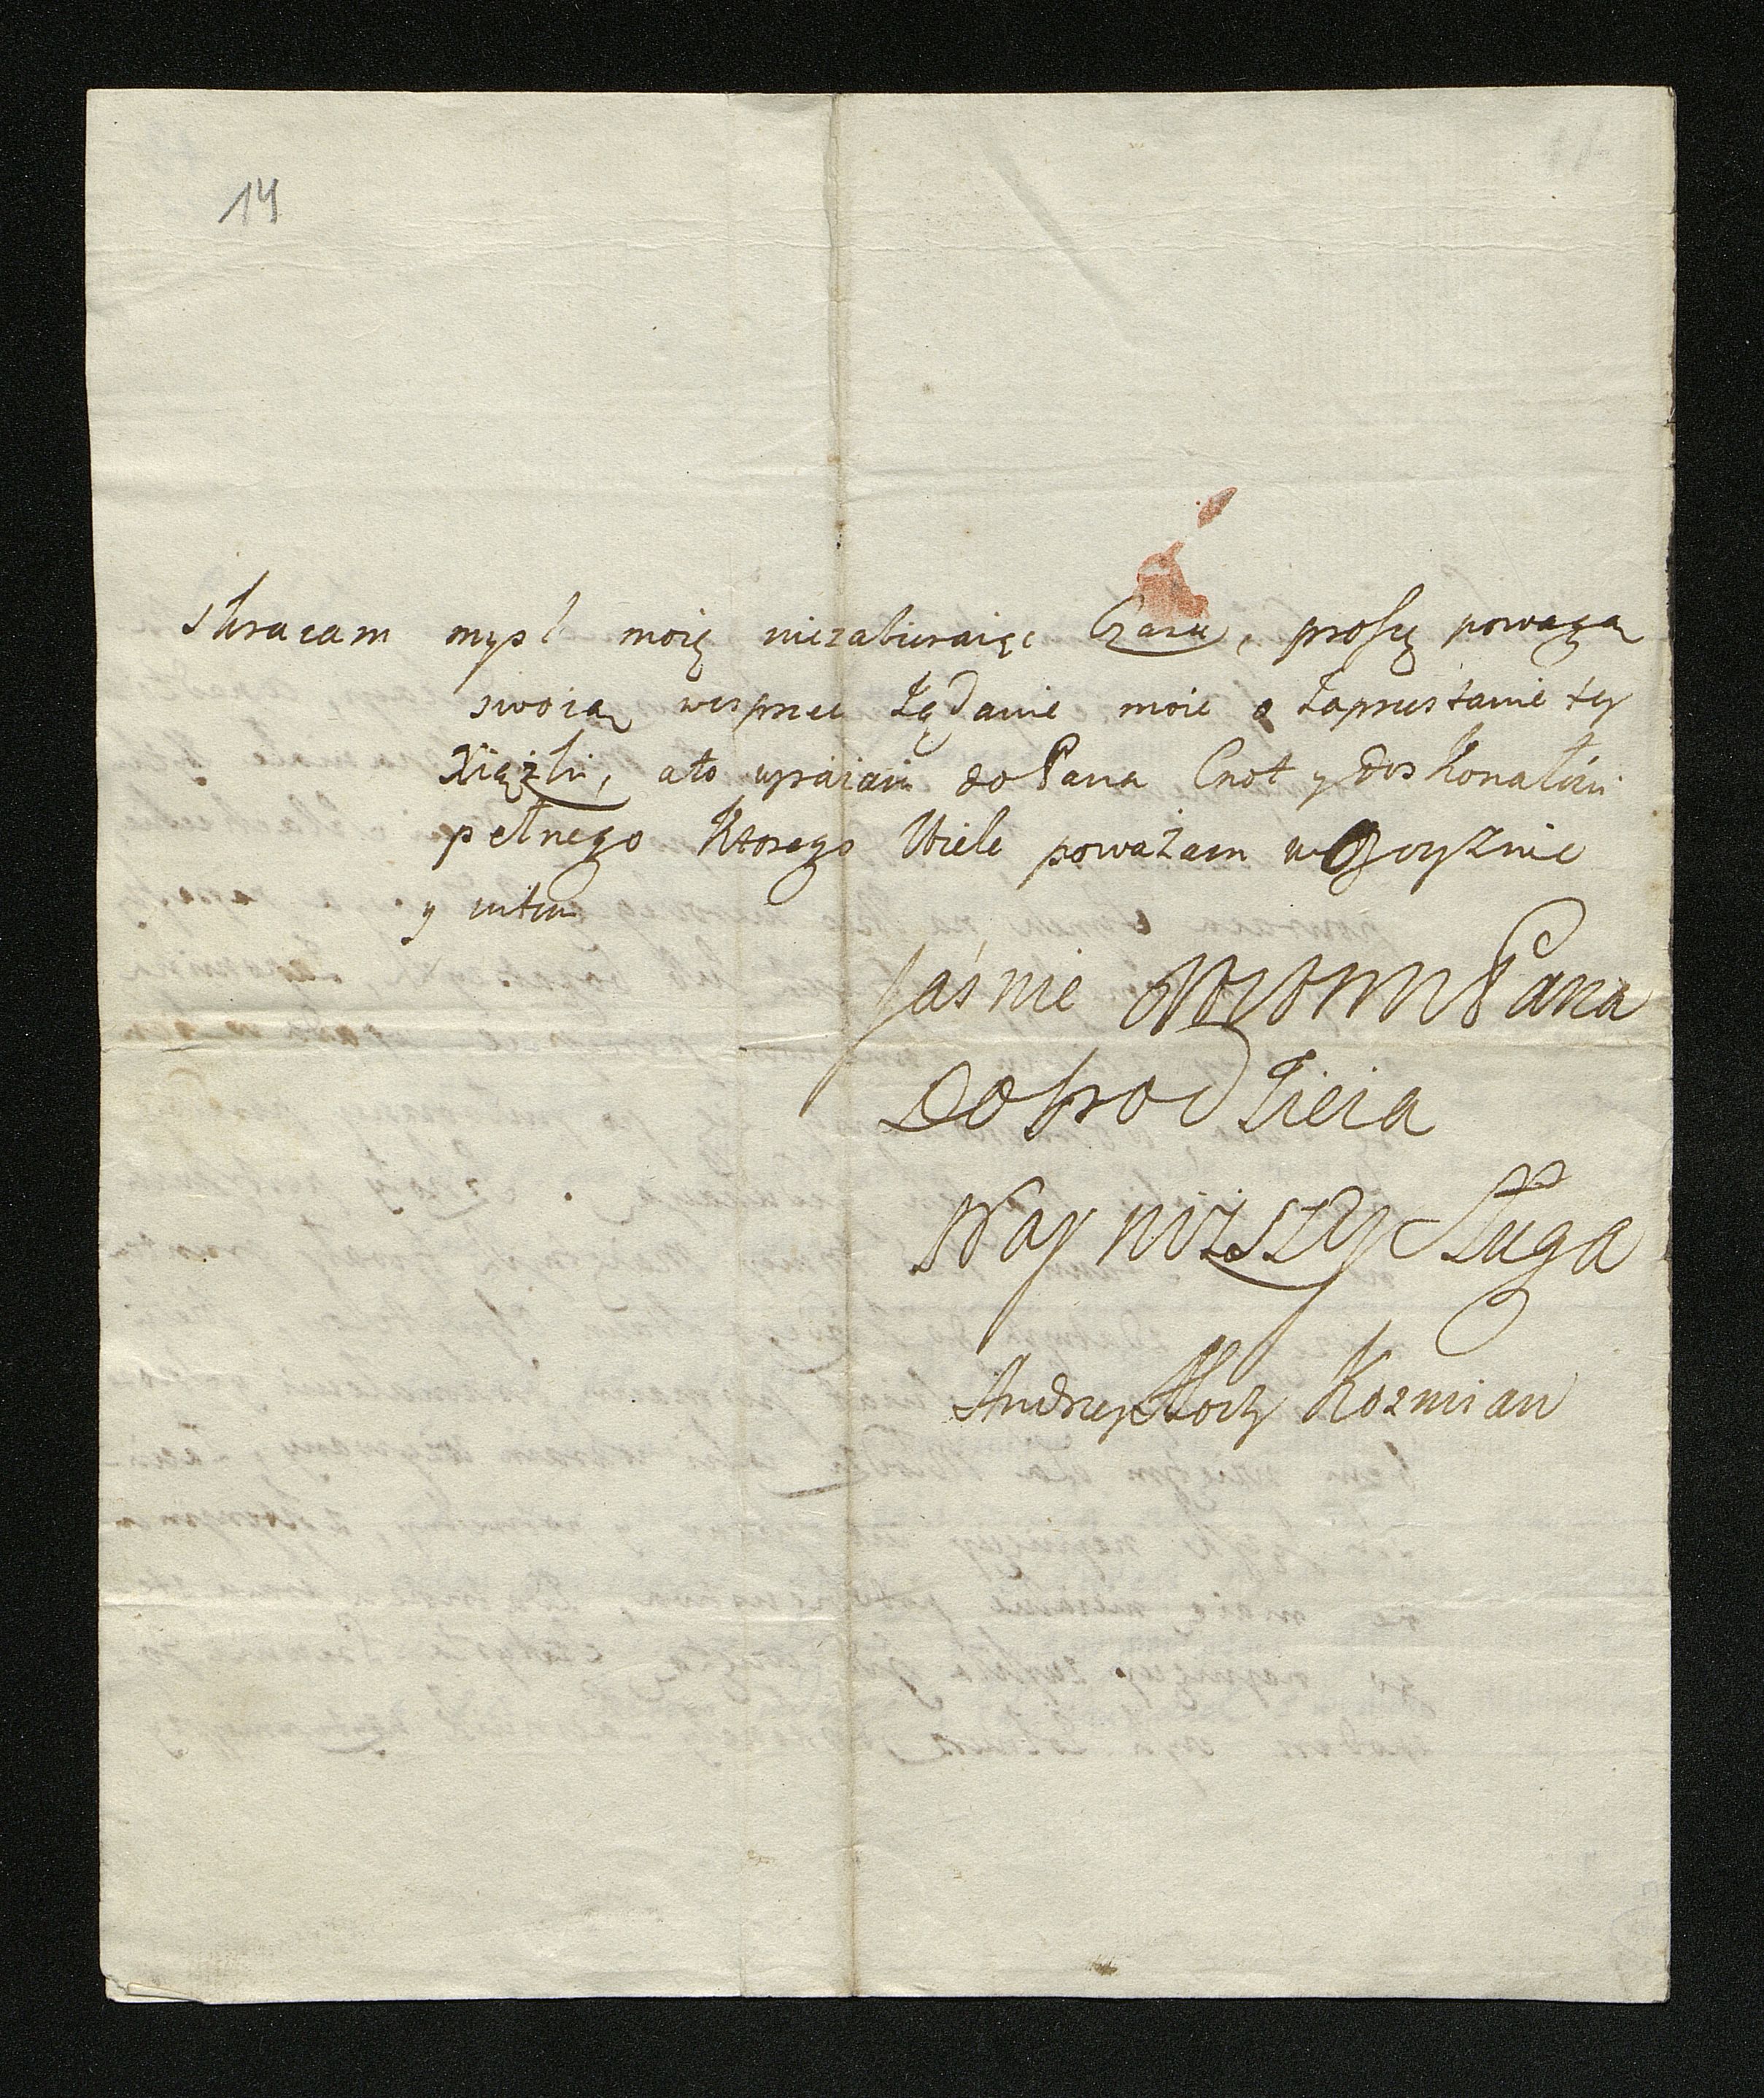 14
skracam mysl moię niezabieraiąc Czasu, proszę powagą
swoią wesprzec żądanie moie o zaprzestanie tey
Xiążki, a to upraszam do Pana Cnot y doskonałości
pełnego Ktorego Wiele poważam w Oyczyznie
y
Jaśnie WW Pana
Dobrodzieia
Nayniższy Sługa
Andrzey Kozmian